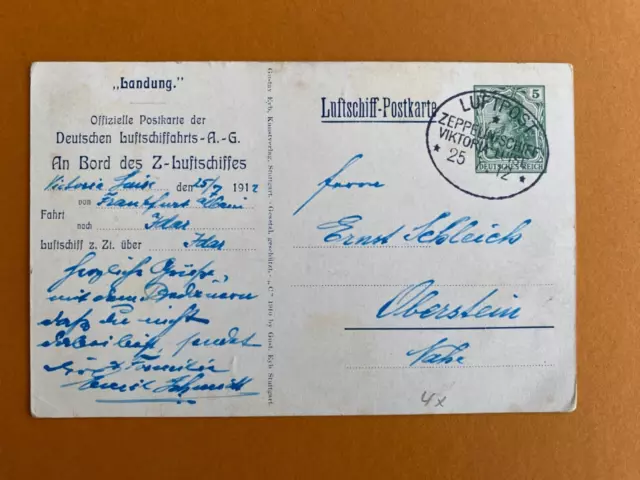 „Landung."
Offizielle Postkarte der
Deutschen Luftschiffahrts-A.-G.
An Bord des Z-Luftschiffes
Victoria Luise den 25/7 1912
Fahrt von Frankfurt
nach Idar
Luftschiff z. Zt. über Idar
herzliche Grüße,
mit dem Bedauern
daß du nicht
dabei bist, sendet
Familie
Emil Schmidt
Gustav Eyb, Kunstverlag, Stuttgart. - Gesetzl. geschützt. - „C" 1910 by Gust. Eyb Stuttgart.
Luftschiff-Postkarte
5
DEUTSCHES REICH
LUFTPOST
ZEPPELINSCHIFF
VIKTORIA
* 25 12 *
Herrn
Ernst Schleich
Oberstein
Nahe
4x